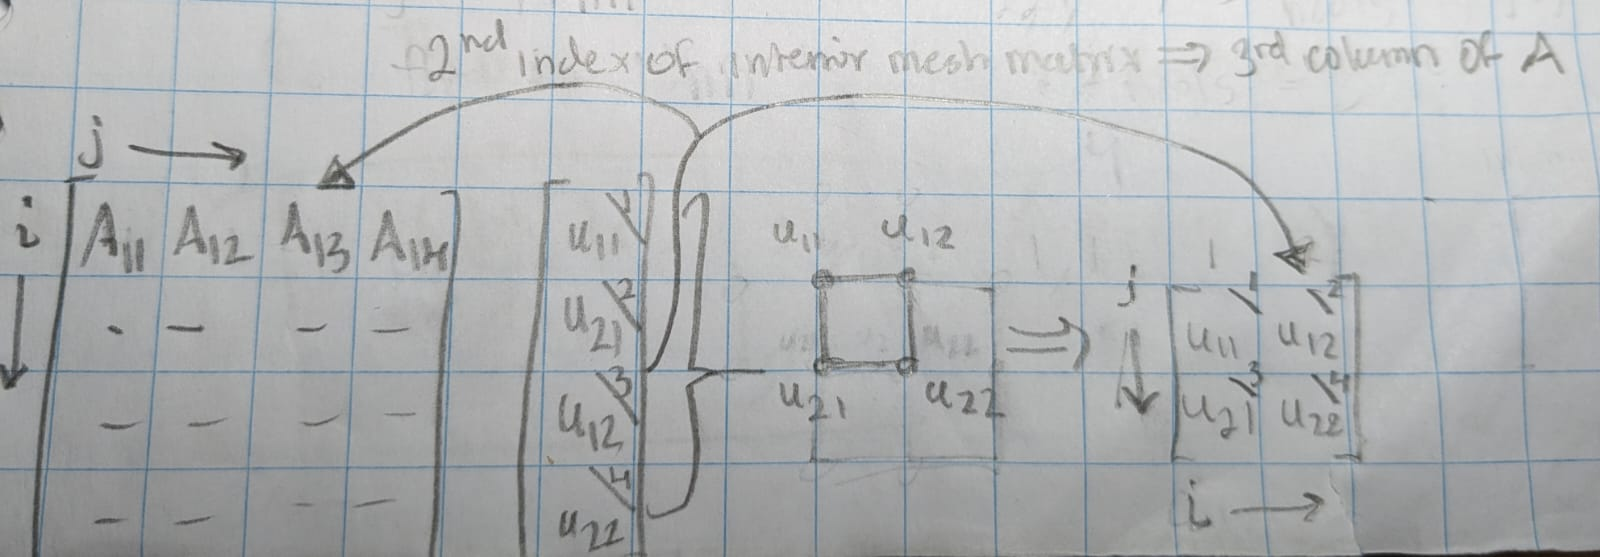 2nd index of interior mesh matrix ⇒ 3rd column of A
j →
i ↓
A11 A12 A13 A14
- - - -
- - - -
- - - -
u11 1
u21 2
u12 3
u22 4
u11 u12
u21 u22
⇒
j ↓
u11 1 u12 2
u21 3 u22 4
i →